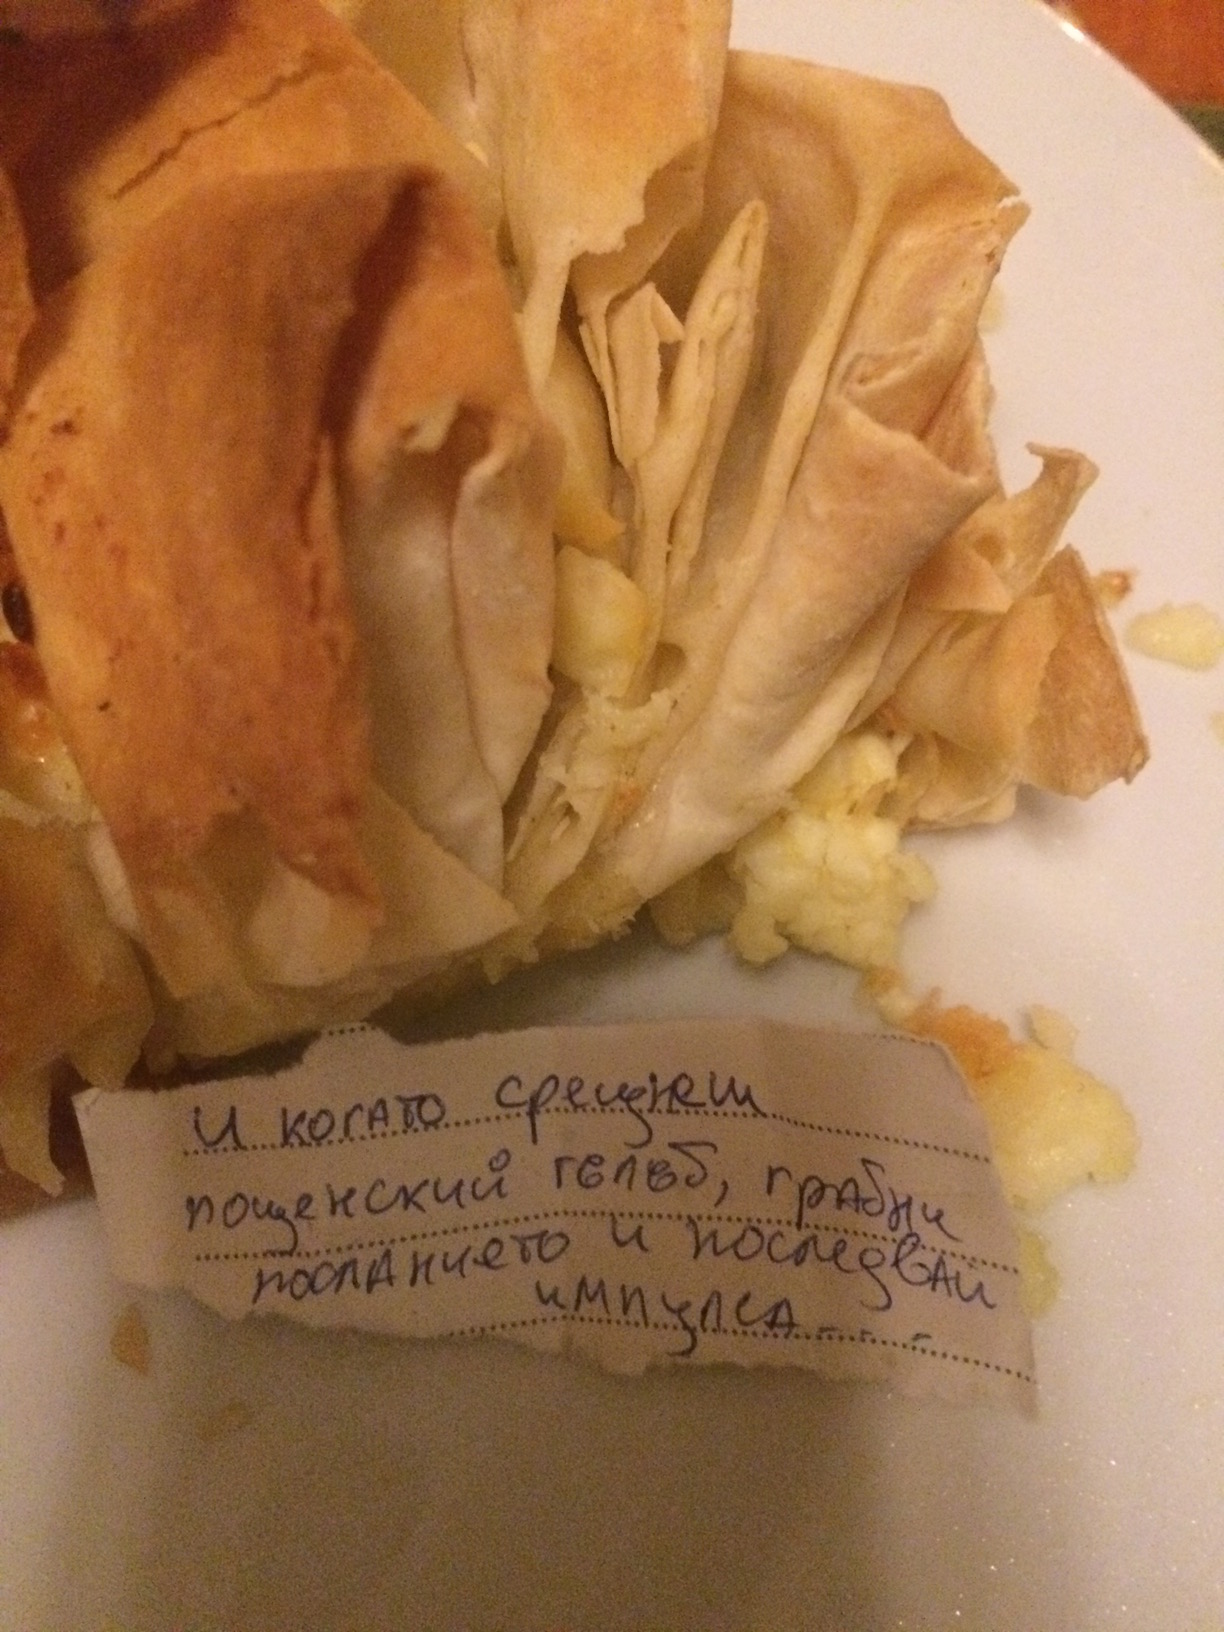 И когато срещнеш
пощенский гълъб, грабни
посланието и последвай
импулса....